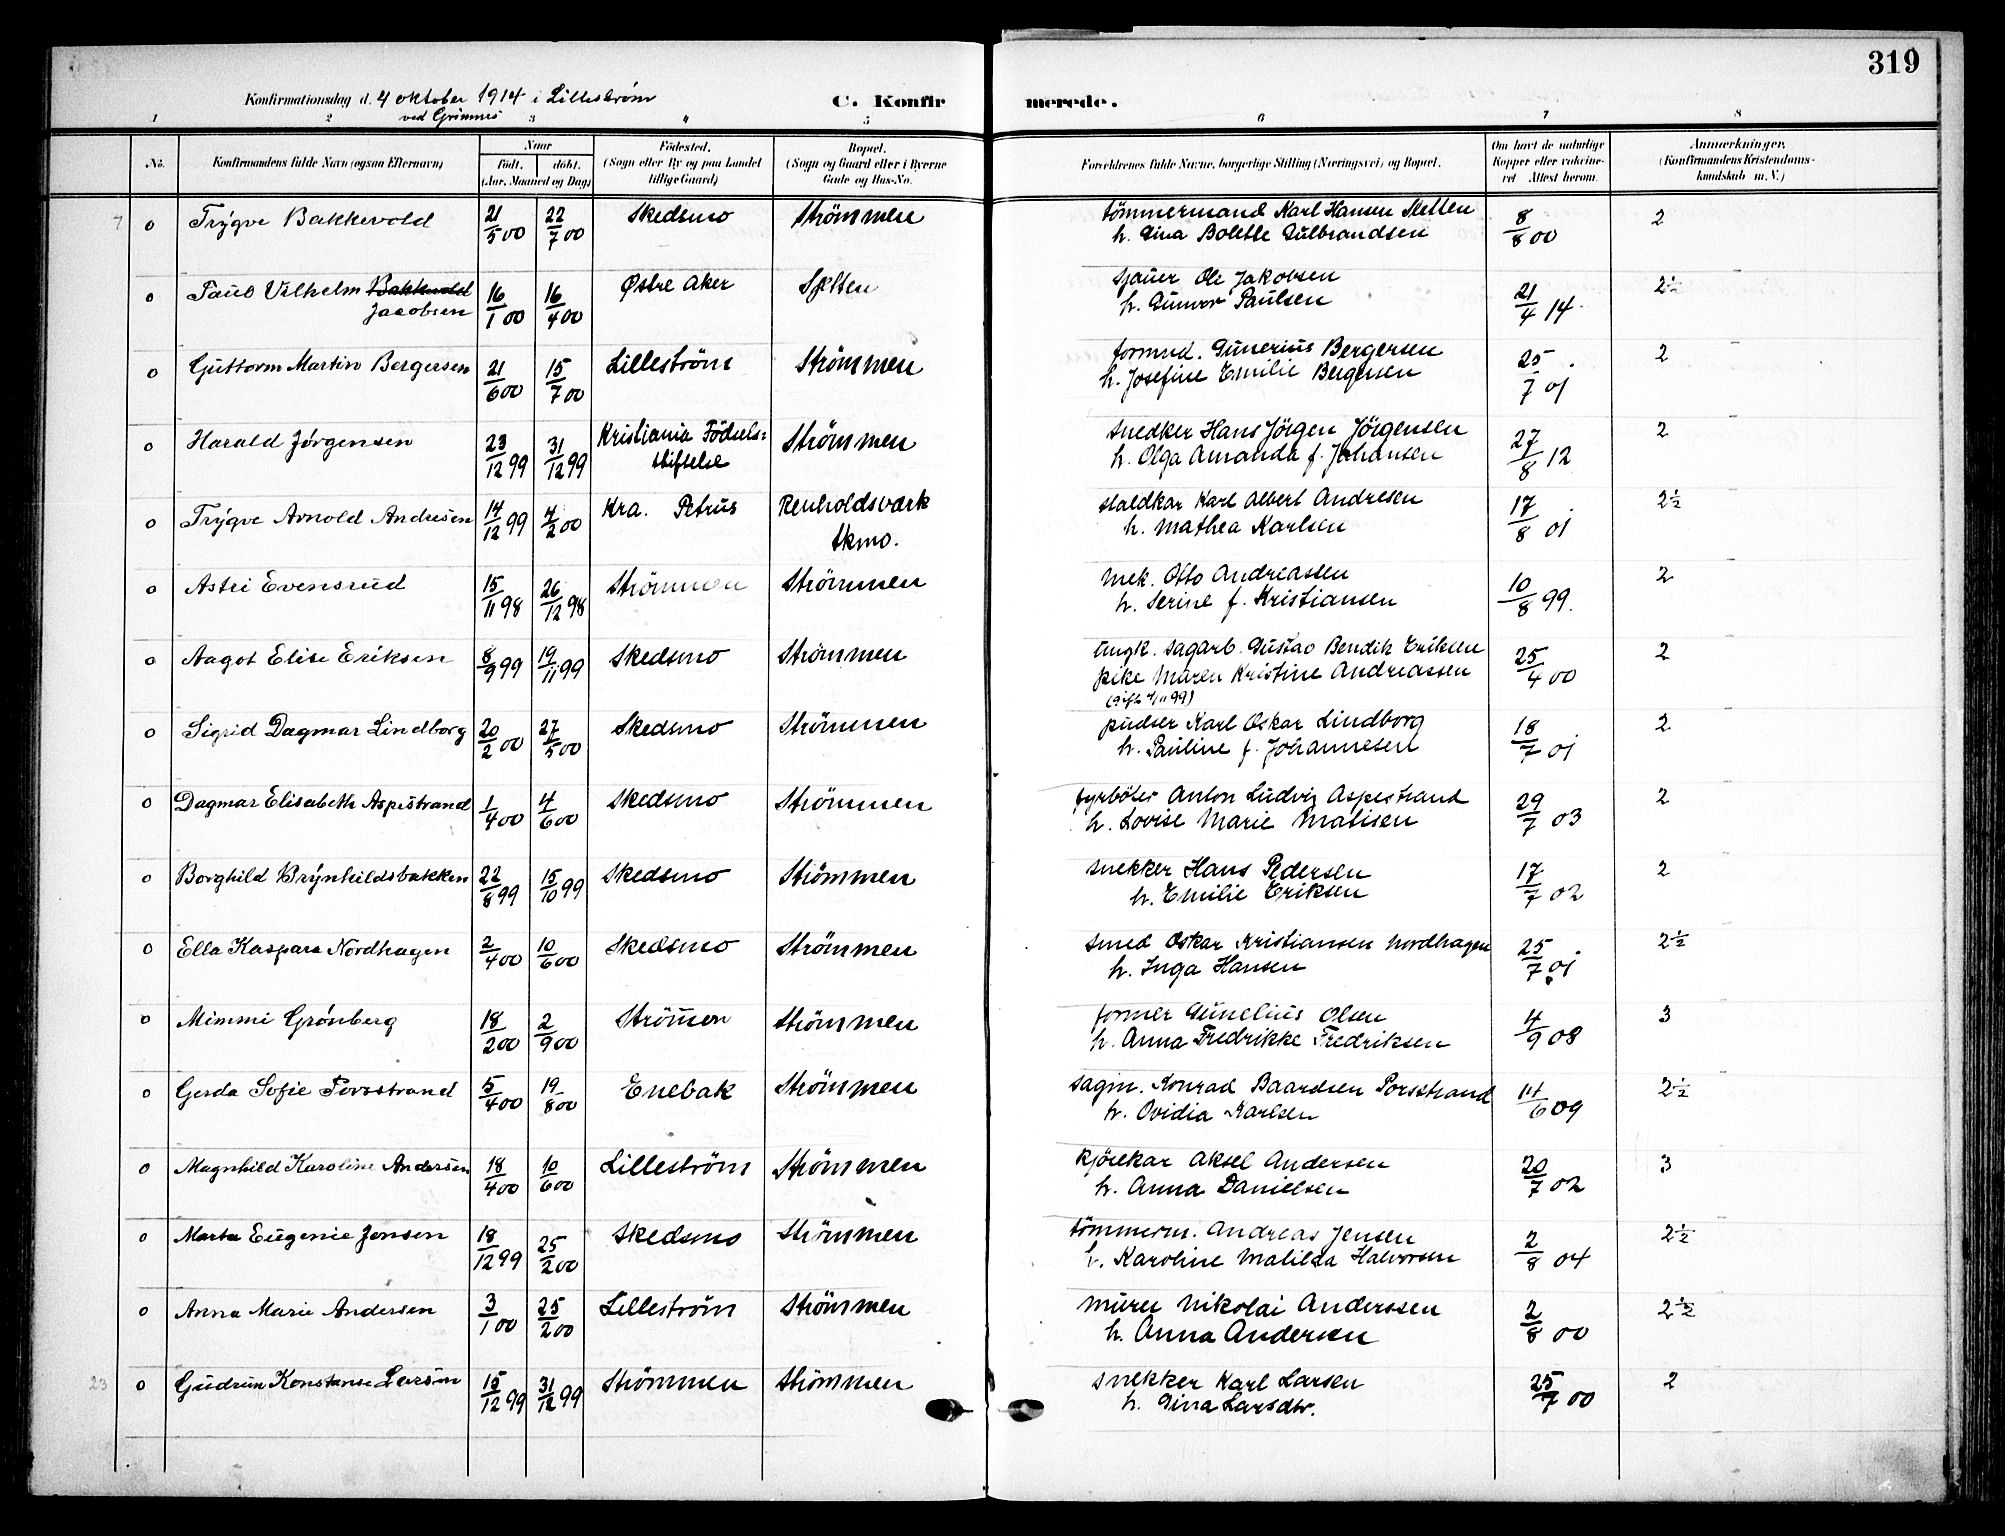 319
Konfirmationsdag d. 4 oktober 1914 i Lilleström
ved Grimnes
C. Konfirmerede.
1 2 3 4 5 6 7 8
No. Konfirmandens fulde Navn (ogsaa Efternavn) Naar født. døbt. (Aar, Maaned og Dag) Fødested. (Sogn eller By og paa Landet tillige Gaard) Bopæl. (Sogn og Gaard eller i Byerne Gade og Hus-No. Forældrenes fulde Navne, borgerlige Stilling (Næringsvei) og Bopæl. Om havt de naturlige Kopper eller vakcineret Attest herom. Anmærkninger. (Konfirmandens Kristendomskundskab m. V.)
7 o Trygve Bakkevold 21/5 00 22/7 00 Skedsmo Strömmen tömmermand Karl Hansen Sletten 8/8 00 2
h. Gina Bolette Gulbrandsen
o Paul Vilhelm Bakkevold 16/1 00 16/4 00 Østre Aker sjauer Ole Jakobsen 21/4 14 2½
Jacobsen h. Gunvor Paulsen
o Guttorm Martin Bergersen 21/6 00 15/7 00 Lilleström Strömmen formnd. Gunerius Bergersen 25/7 01 2
h. Josefine Emilie Bergersen
o Harald Jørgensen 23/12 99 31/12 99 Kristiania Födsels= Strömmen snedker Hans Jörgen Jörgensen 27/8 12 2
stiftelse h. Olga Amanda f. Johansen
o Trygve Arnold Andresen 14/12 99 4/2 00 Kra. Petrus Renholdsværk staldkar Karl Albert Andresen 17/8 01 2½
Skmo. h. Mathea Karlsen
o Astri Evensrud 15/11 98 26/12 98 Strömmen Strömmen mek. Otto Andreassen 10/8 99. 2
h. Serine f. Kristiansen
o Aagot Elise Eriksen 8/9 99 19/11 99 Skedsmo Strömmen ungk. sagarb. Gustav Bendik Eriksen 25/4 00 2
pike Maren Kristine Andreassen
o Sigrid Dagmar Lindborg 20/2 00 27/5 00 Skedsmo Strömmen pudser Karl Oskar Lindborg 18/7 01 2
h. Pauline f. Johannesen
o Dagmar Elisabeth Aspestrand 1/4 00 4/6 00 Skedsmo Strömmen fyrböter Anton Ludvig Aspestrand 29/7 03 2
h. Lovise Marie Matisen
o Borghild Brynhildsbakken 22/8 99 15/10 99 Skedsmo Strömmen snekker Hans Pedersen 17/7 02 2
h. Emilie Eriksen
o Ella Kaspara Nordhagen 2/4 00 10/6 00 Skedsmo Strömmen smed Oskar Kristiansen Nordhagen 25/7 01 2½
h. Inga Hansen
o Mimmi Grønberg 18/2 00 2/9 00 Strömen Strömmen former Gunelius Olsen 4/9 08 3
h. Anna Fredrikke Fredriksen
o Gerda Sofie Porsstrand 5/4 00 19/8 00 Enebak Strömmen sagm. Konrad Baardsen Porsstrand 11/6 09 2½
h. Ovidia Karlsen
o Magnhild Karoline Andersen 18/4 00 10/6 00 Lilleström Strömmen kjörekar Aksel Andersen 20/7 02 3
h. Anna Danielsen
o Marta Eugenie Jensen 18/12 99 25/2 00 Skedsmo Strömmen tömmerm. Andreas Jensen 2/8 04 2½
h. Karoline Matilda Halvorsen
o Anna Marie Andersen 3/1 00 25/2 00 Lilleström Strömmen murer Nikolai Anderssen 2/8 00 2½
h. Anna Andersen
23 o Gudrun Konstanse Larsen 15/12 99 31/12 99 Strömmen Strömmen snekker Karl Larsen 25/7 00 2
h. Gina Larsdtr.